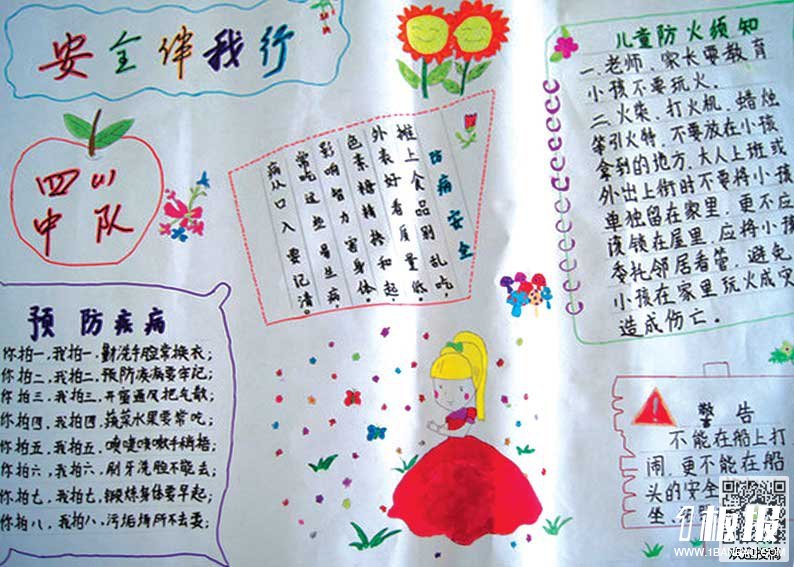 安全伴我行
四(1)
中队
防病安全
摊上食品别乱吃,
外表好看质量低。
色素糖精掺和起,
影响智力害身体。
常吃这些易生病,
病从口入要记清。
预防疾病
你拍一,我拍一,勤洗手脸常换衣;
你拍二,我拍二,预防疾病要牢记;
你拍三,我拍三,开窗通风把气散;
你拍四,我拍四,蔬菜水果要常吃;
你拍五,我拍五,喷嚏咳嗽手绢捂;
你拍六,我拍六,刷牙洗脸不能去;
你拍七,我拍七,锻炼身体要早起;
你拍八,我拍八,污垢场所不去耍;
儿童防火须知
一.老师、家长要教育
小孩不要玩火。
二.火柴、打火机、蜡烛
等引火特,不要放在小孩
拿到的地方,大人上班或
外出上街时不要将小孩
单独留在家里,更不应
该锁在屋里,应将小孩
委托邻居看管,避免
小孩在家里玩火成灾
造成伤亡。
警告
不能在船上打
闹,更不能在船
头的安全
坐
1板报
WWW.1BANBAO.COM